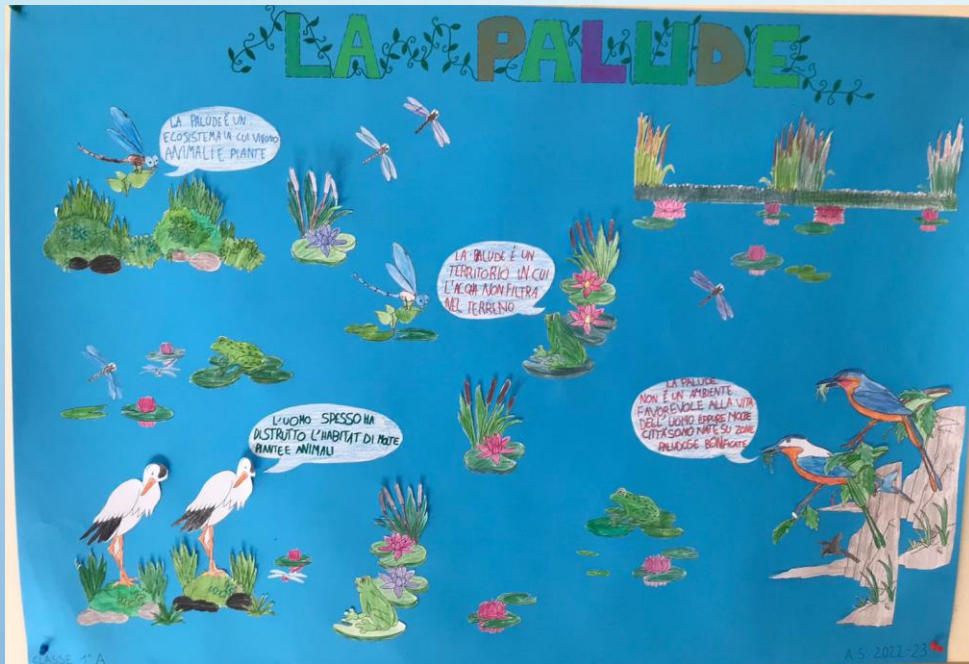 LA PALUDE
LA PALUDE È UN
ECOSISTEMA IN CUI VIVONO
ANIMALI E PIANTE
LA PALUDE É UN
TERRITORIO IN CUI
L'ACQUA NON FILTRA
NEL TERRENO
L'UOMO SPESSO HA
DISTRUTTO L'HABITAT DI MOLTE
PIANTE E ANIMALI
LA PALUDE
NON É UN AMBIENTE
FAVOREVOLE ALLA VITA
DELL'UOMO EPPURE MOLTE
CITTÀ SONO NATE SU ZONE
PALUDOSE BONIFICATE
CLASSE 1°A
A.S. 2022-23